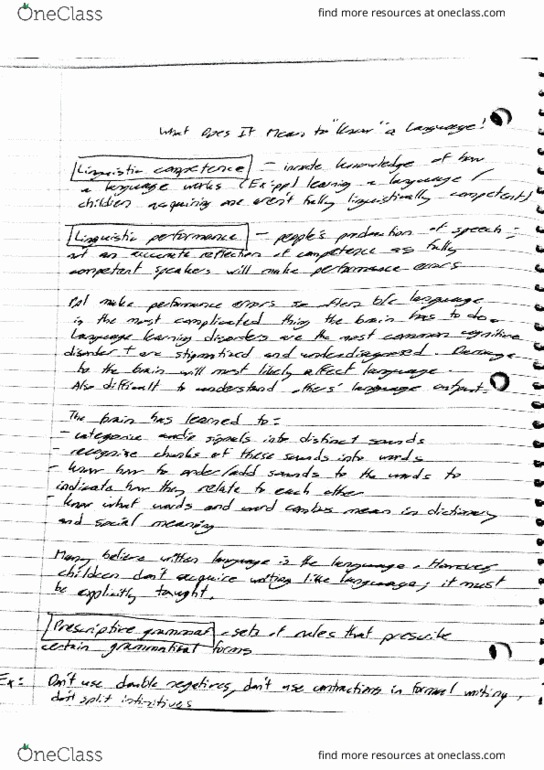 OneClass
find more resources at oneclass.com
What Does It Mean to "Know" a Language?
Linguistic competence - innate knowledge of how
a language works (Ex: ppl learning a language /
children acquiring one aren't fully linguistically competent)
Linguistic performance - people's production of speech;
not an accurate reflection of competence as fully
competent speakers will make performance errors
Ppl make performance errors so often b/c language
is the most complicated thing the brain has to do.
Language learning disorders are the most common cognitive
disorder + are stigmatized and underdiagnosed. Damage
to the brain will most likely affect language.
Also difficult to understand others' language output.
The brain has learned to:
- categorize audio signals into distinct sounds
- recognize chunks of these sounds into words
- know how to order/add sounds to the words to
indicate how they relate to each other
- know what words and word combos mean in dictionary
and social meaning
Many believe written language is the language. However,
children don't acquire writing like language; it must
be explicitly taught.
Prescriptive grammar - sets of rules that prescribe
certain grammatical forms
Ex: Don't use double negatives, don't use contractions in formal writing,
don't split infinitives
OneClass
find more resources at oneclass.com